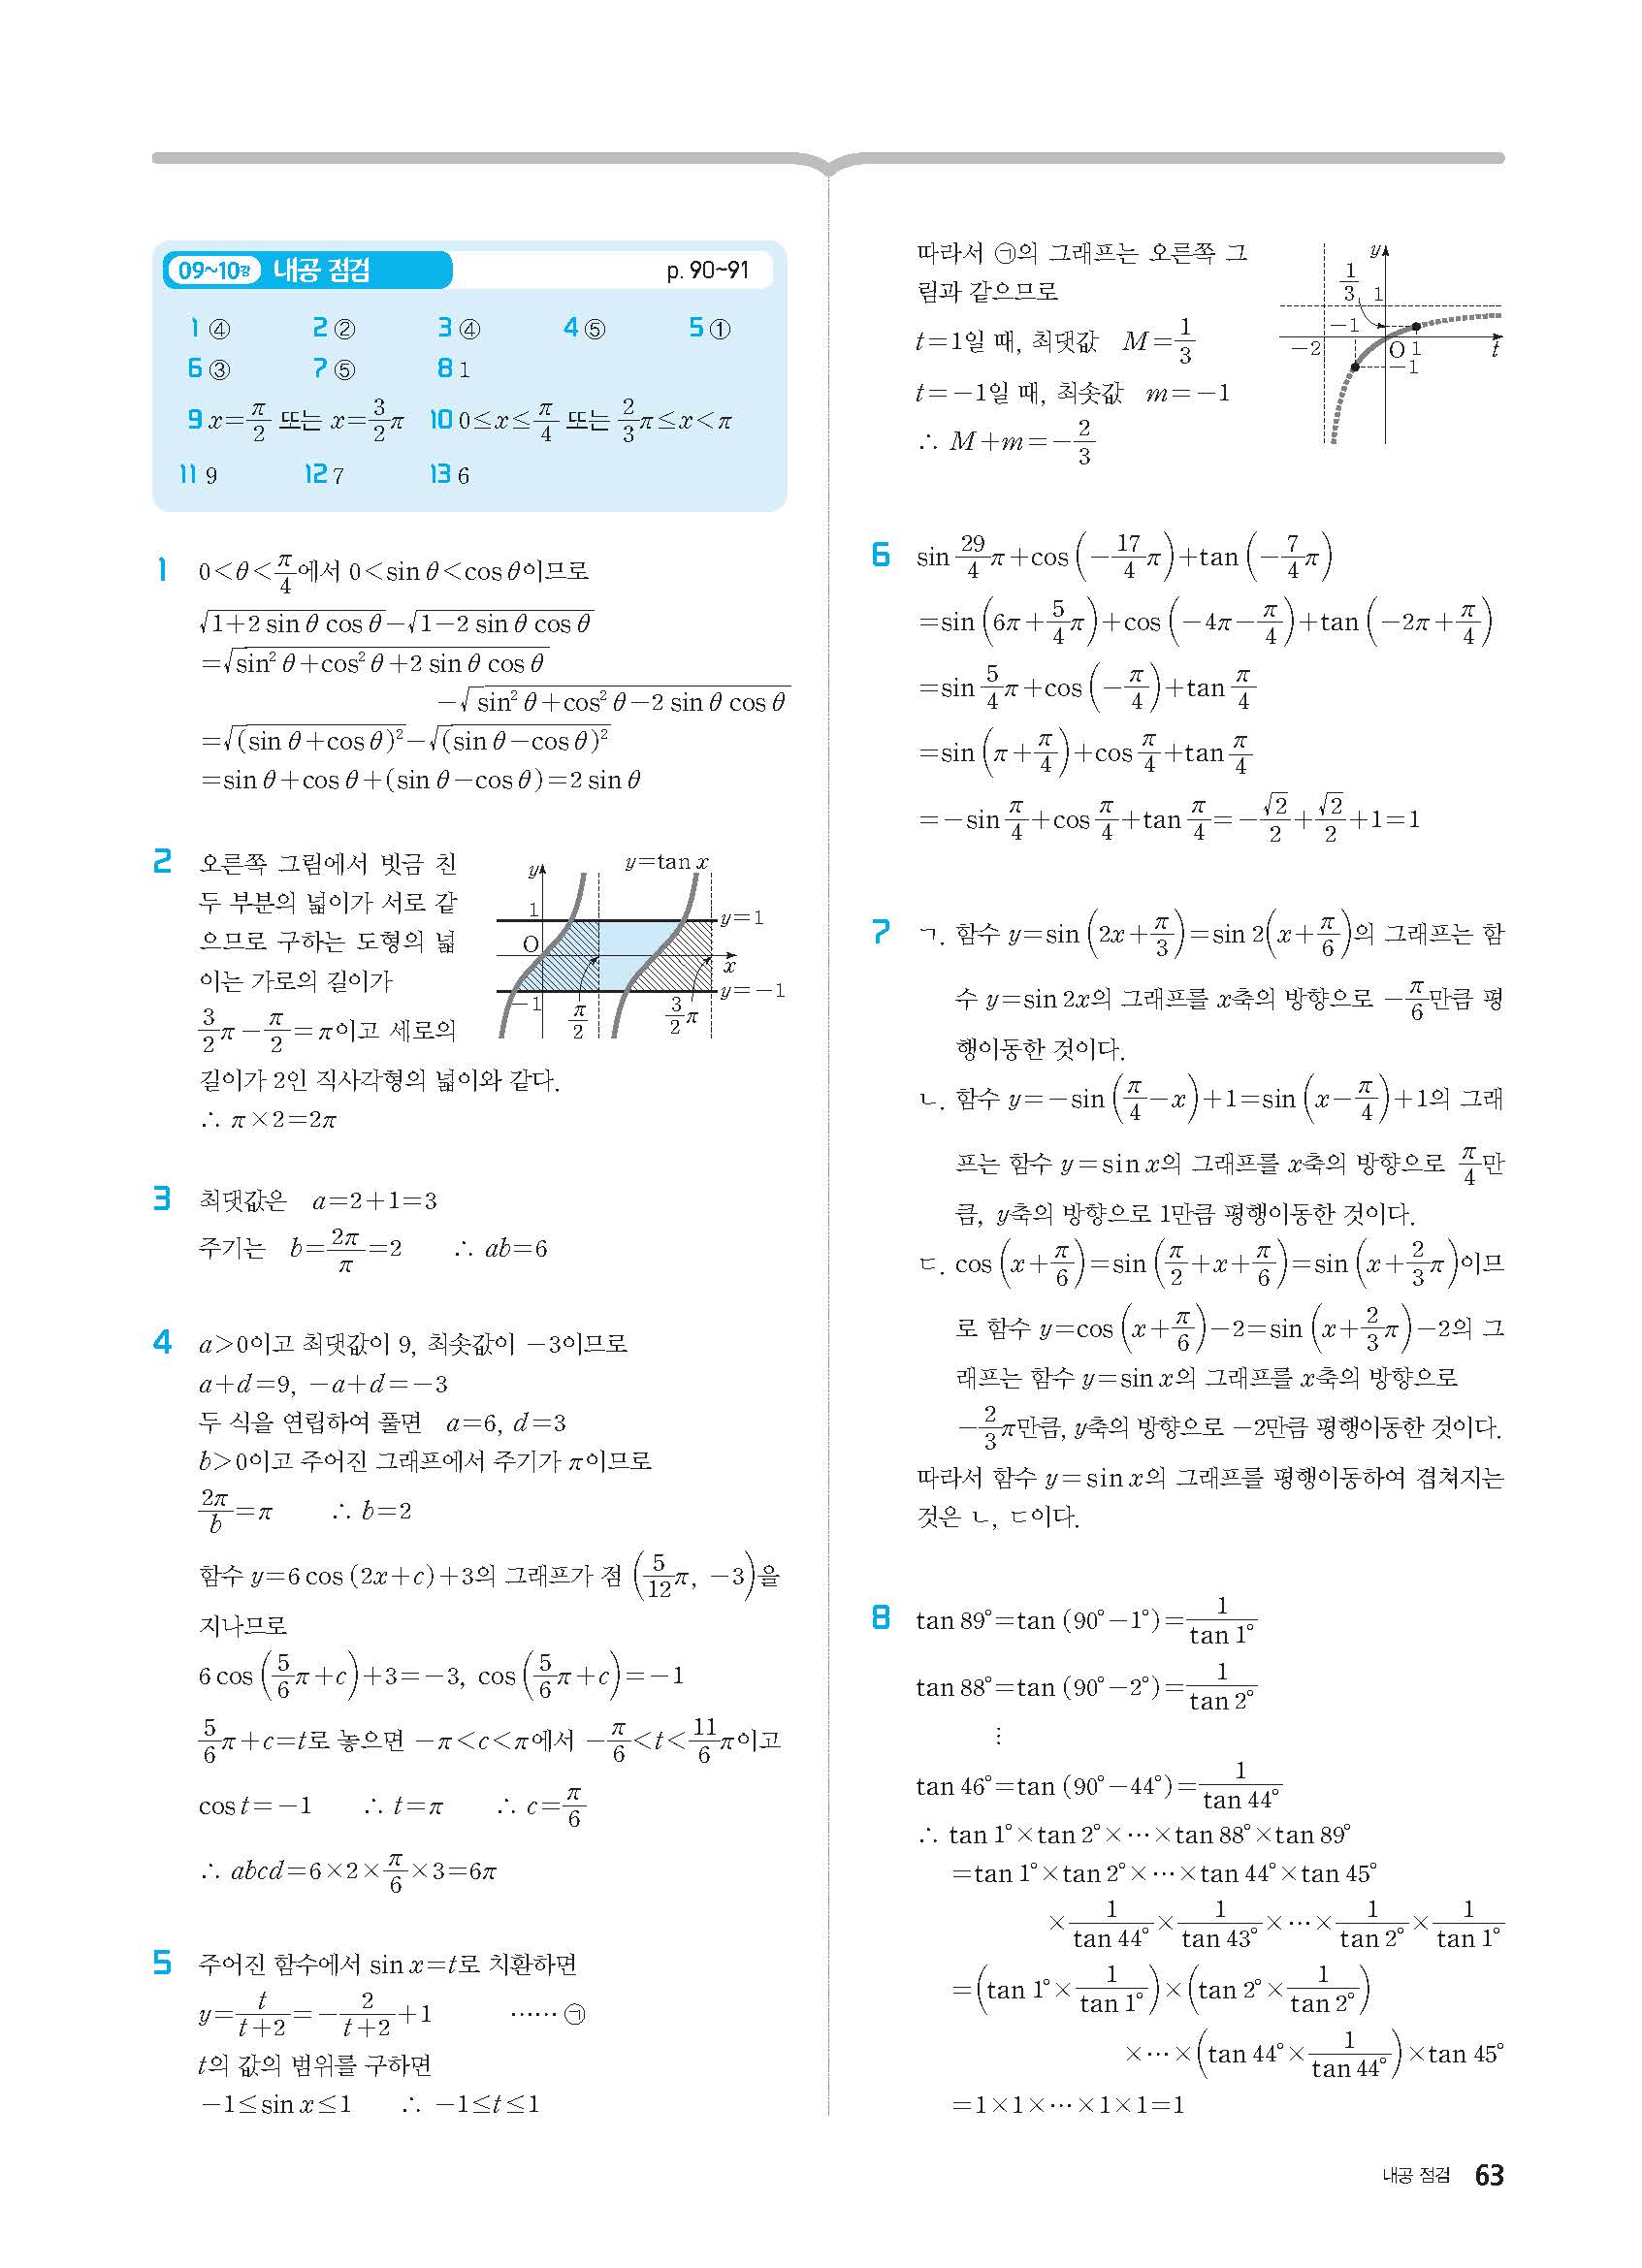 09~10강 내공 점검 p. 90~91
1 ④ 2 ② 3 ④ 4 ⑤ 5 ①
6 ③ 7 ⑤ 8 1
9 x=π/2 또는 x=3/2π 10 0≤x≤π/4 또는 2/3π≤x<π
11 9 12 7 13 6
1 0<θ<π/4에서 0<sin θ<cos θ이므로
√(1+2 sin θ cos θ)-√(1-2 sin θ cos θ)
=√(sin² θ+cos² θ+2 sin θ cos θ)
-√(sin² θ+cos² θ-2 sin θ cos θ)
=√((sin θ+cos θ)²)-√((sin θ-cos θ)²)
=sin θ+cos θ+(sin θ-cos θ)=2 sin θ
2 오른쪽 그림에서 빗금 친
두 부분의 넓이가 서로 같
으므로 구하는 도형의 넓
이는 가로의 길이가
3/2π-π/2=π이고 세로의
길이가 2인 직사각형의 넓이와 같다.
∴ π×2=2π
y
y=tan x
1
y=1
O
x
y=-1
-1
π/2
3/2π
3 최댓값은 a=2+1=3
주기는 b=2π/π=2 ∴ ab=6
4 a>0이고 최댓값이 9, 최솟값이 -3이므로
a+d=9, -a+d=-3
두 식을 연립하여 풀면 a=6, d=3
b>0이고 주어진 그래프에서 주기가 π이므로
2π/b=π ∴ b=2
함수 y=6 cos (2x+c)+3의 그래프가 점 (5/12π, -3)을
지나므로
6 cos (5/6π+c)+3=-3, cos (5/6π+c)=-1
5/6π+c=t로 놓으면 -π<c<π에서 -π/6<t<11/6π이고
cos t=-1 ∴ t=π ∴ c=π/6
∴ abcd=6×2×π/6×3=6π
5 주어진 함수에서 sin x=t로 치환하면
y=t/(t+2)=-2/(t+2)+1 …… ㉠
t의 값의 범위를 구하면
-1≤sin x≤1 ∴ -1≤t≤1
따라서 ㉠의 그래프는 오른쪽 그
림과 같으므로
t=1일 때, 최댓값 M=1/3
t=-1일 때, 최솟값 m=-1
∴ M+m=-2/3
y
1/3
1
-1
-2
O
1
t
-1
6 sin 29/4π+cos (-17/4π)+tan (-7/4π)
=sin (6π+5/4π)+cos (-4π-π/4)+tan (-2π+π/4)
=sin 5/4π+cos (-π/4)+tan π/4
=sin (π+π/4)+cos π/4+tan π/4
=-sin π/4+cos π/4+tan π/4=-√2/2+√2/2+1=1
7 ㄱ. 함수 y=sin (2x+π/3)=sin 2(x+π/6)의 그래프는 함
수 y=sin 2x의 그래프를 x축의 방향으로 -π/6만큼 평
행이동한 것이다.
ㄴ. 함수 y=-sin (π/4-x)+1=sin (x-π/4)+1의 그래
프는 함수 y=sin x의 그래프를 x축의 방향으로 π/4만
큼, y축의 방향으로 1만큼 평행이동한 것이다.
ㄷ. cos (x+π/6)=sin (π/2+x+π/6)=sin (x+2/3π)이므
로 함수 y=cos (x+π/6)-2=sin (x+2/3π)-2의 그
래프는 함수 y=sin x의 그래프를 x축의 방향으로
-2/3π만큼, y축의 방향으로 -2만큼 평행이동한 것이다.
따라서 함수 y=sin x의 그래프를 평행이동하여 겹쳐지는
것은 ㄴ, ㄷ이다.
8 tan 89°=tan (90°-1°)=1/tan 1°
tan 88°=tan (90°-2°)=1/tan 2°
⋮
tan 46°=tan (90°-44°)=1/tan 44°
∴ tan 1°×tan 2°×…×tan 88°×tan 89°
=tan 1°×tan 2°×…×tan 44°×tan 45°
×1/tan 44°×1/tan 43°×…×1/tan 2°×1/tan 1°
=(tan 1°×1/tan 1°)×(tan 2°×1/tan 2°)
×…×(tan 44°×1/tan 44°)×tan 45°
=1×1×…×1×1=1
내공 점검 63